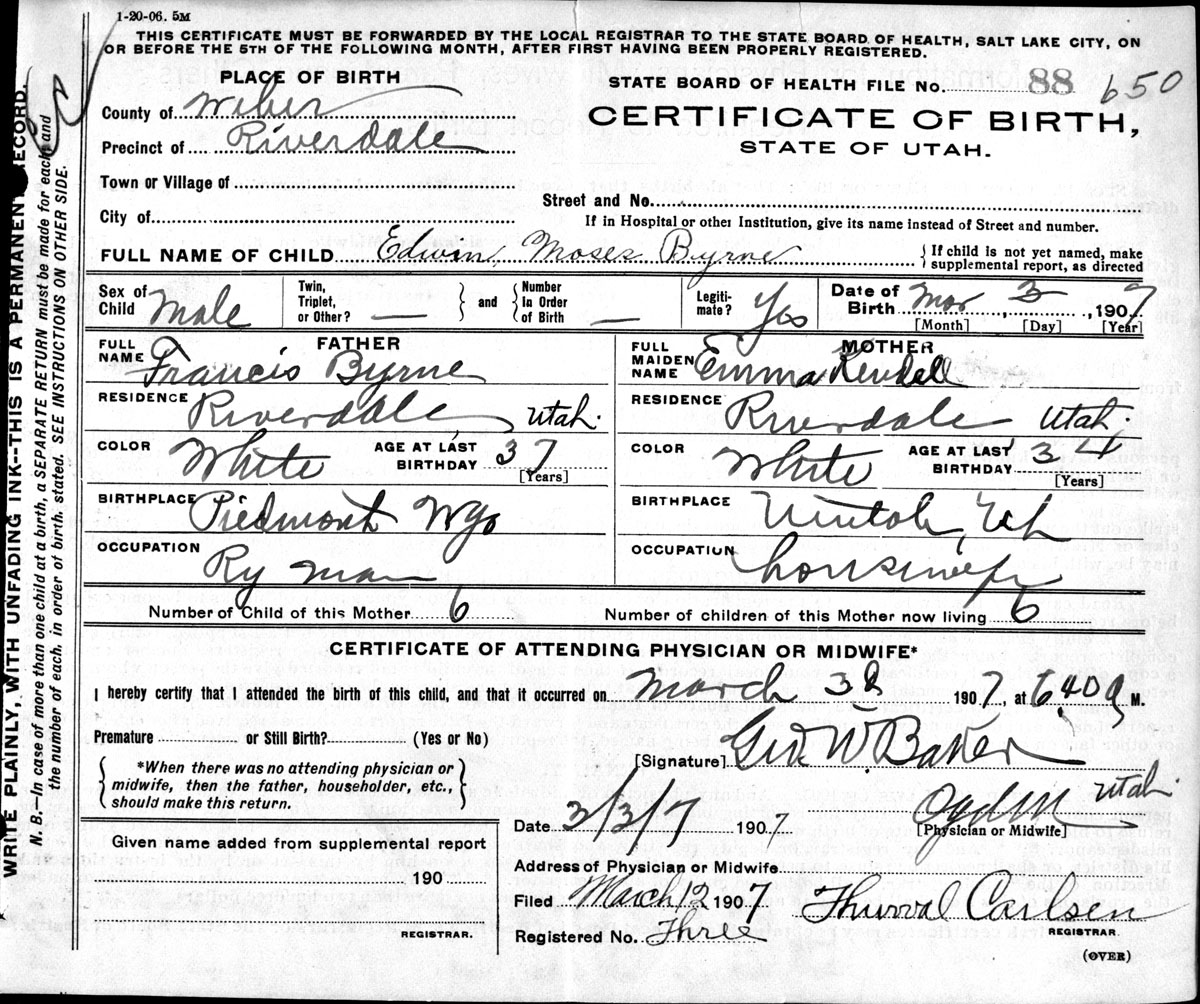 1-20-06. 5M
THIS CERTIFICATE MUST BE FORWARDED BY THE LOCAL REGISTRAR TO THE STATE BOARD OF HEALTH, SALT LAKE CITY, ON
OR BEFORE THE 5TH OF THE FOLLOWING MONTH, AFTER FIRST HAVING BEEN PROPERLY REGISTERED.
WRITE PLAINLY, WITH UNFADING INK--THIS IS A PERMANENT RECORD.
N. B.—In case of more than one child at a birth, a SEPARATE RETURN must be made for each, and
the number of each, in order of birth, stated. SEE INSTRUCTIONS ON OTHER SIDE.
PLACE OF BIRTH
County of Weber
Precinct of Riverdale
Town or Village of
City of
STATE BOARD OF HEALTH FILE No. 88 650
CERTIFICATE OF BIRTH,
STATE OF UTAH.
Street and No.
If in Hospital or other Institution, give its name instead of Street and number.
FULL NAME OF CHILD Edwin Moses Byrne
{If child is not yet named, make
supplemental report, as directed
Sex of Child Male
Twin, Triplet, or Other? — } and { Number In Order of Birth —
Legiti-mate? Yes
Date of Birth Mar 3, 1907
[Month] [Day] [Year]
FATHER
FULL NAME Francis Byrne
RESIDENCE Riverdale Utah.
COLOR White AGE AT LAST BIRTHDAY 37
[Years]
BIRTHPLACE Piedmont Wyo
OCCUPATION Ry man
MOTHER
FULL MAIDEN NAME Emma Kendell
RESIDENCE Riverdale Utah.
COLOR White AGE AT LAST BIRTHDAY 34
[Years]
BIRTHPLACE Uintah, Ut
OCCUPATION housewife
Number of Child of this Mother 6 Number of children of this Mother now living 6
CERTIFICATE OF ATTENDING PHYSICIAN OR MIDWIFE*
I hereby certify that I attended the birth of this child, and that it occurred on March 3d 1907, at 6,40 a M.
Premature or Still Birth? (Yes or No)
{ *When there was no attending physician or
midwife, then the father, householder, etc.,
should make this return. }
[Signature] Geo. W. Baker
Ogden Utah
Date 3/3/7 1907 [Physician or Midwife]
Address of Physician or Midwife
Given name added from supplemental report
190
REGISTRAR.
Filed March 12 1907 Thurval Carlsen
REGISTRAR.
Registered No. Three
(OVER)